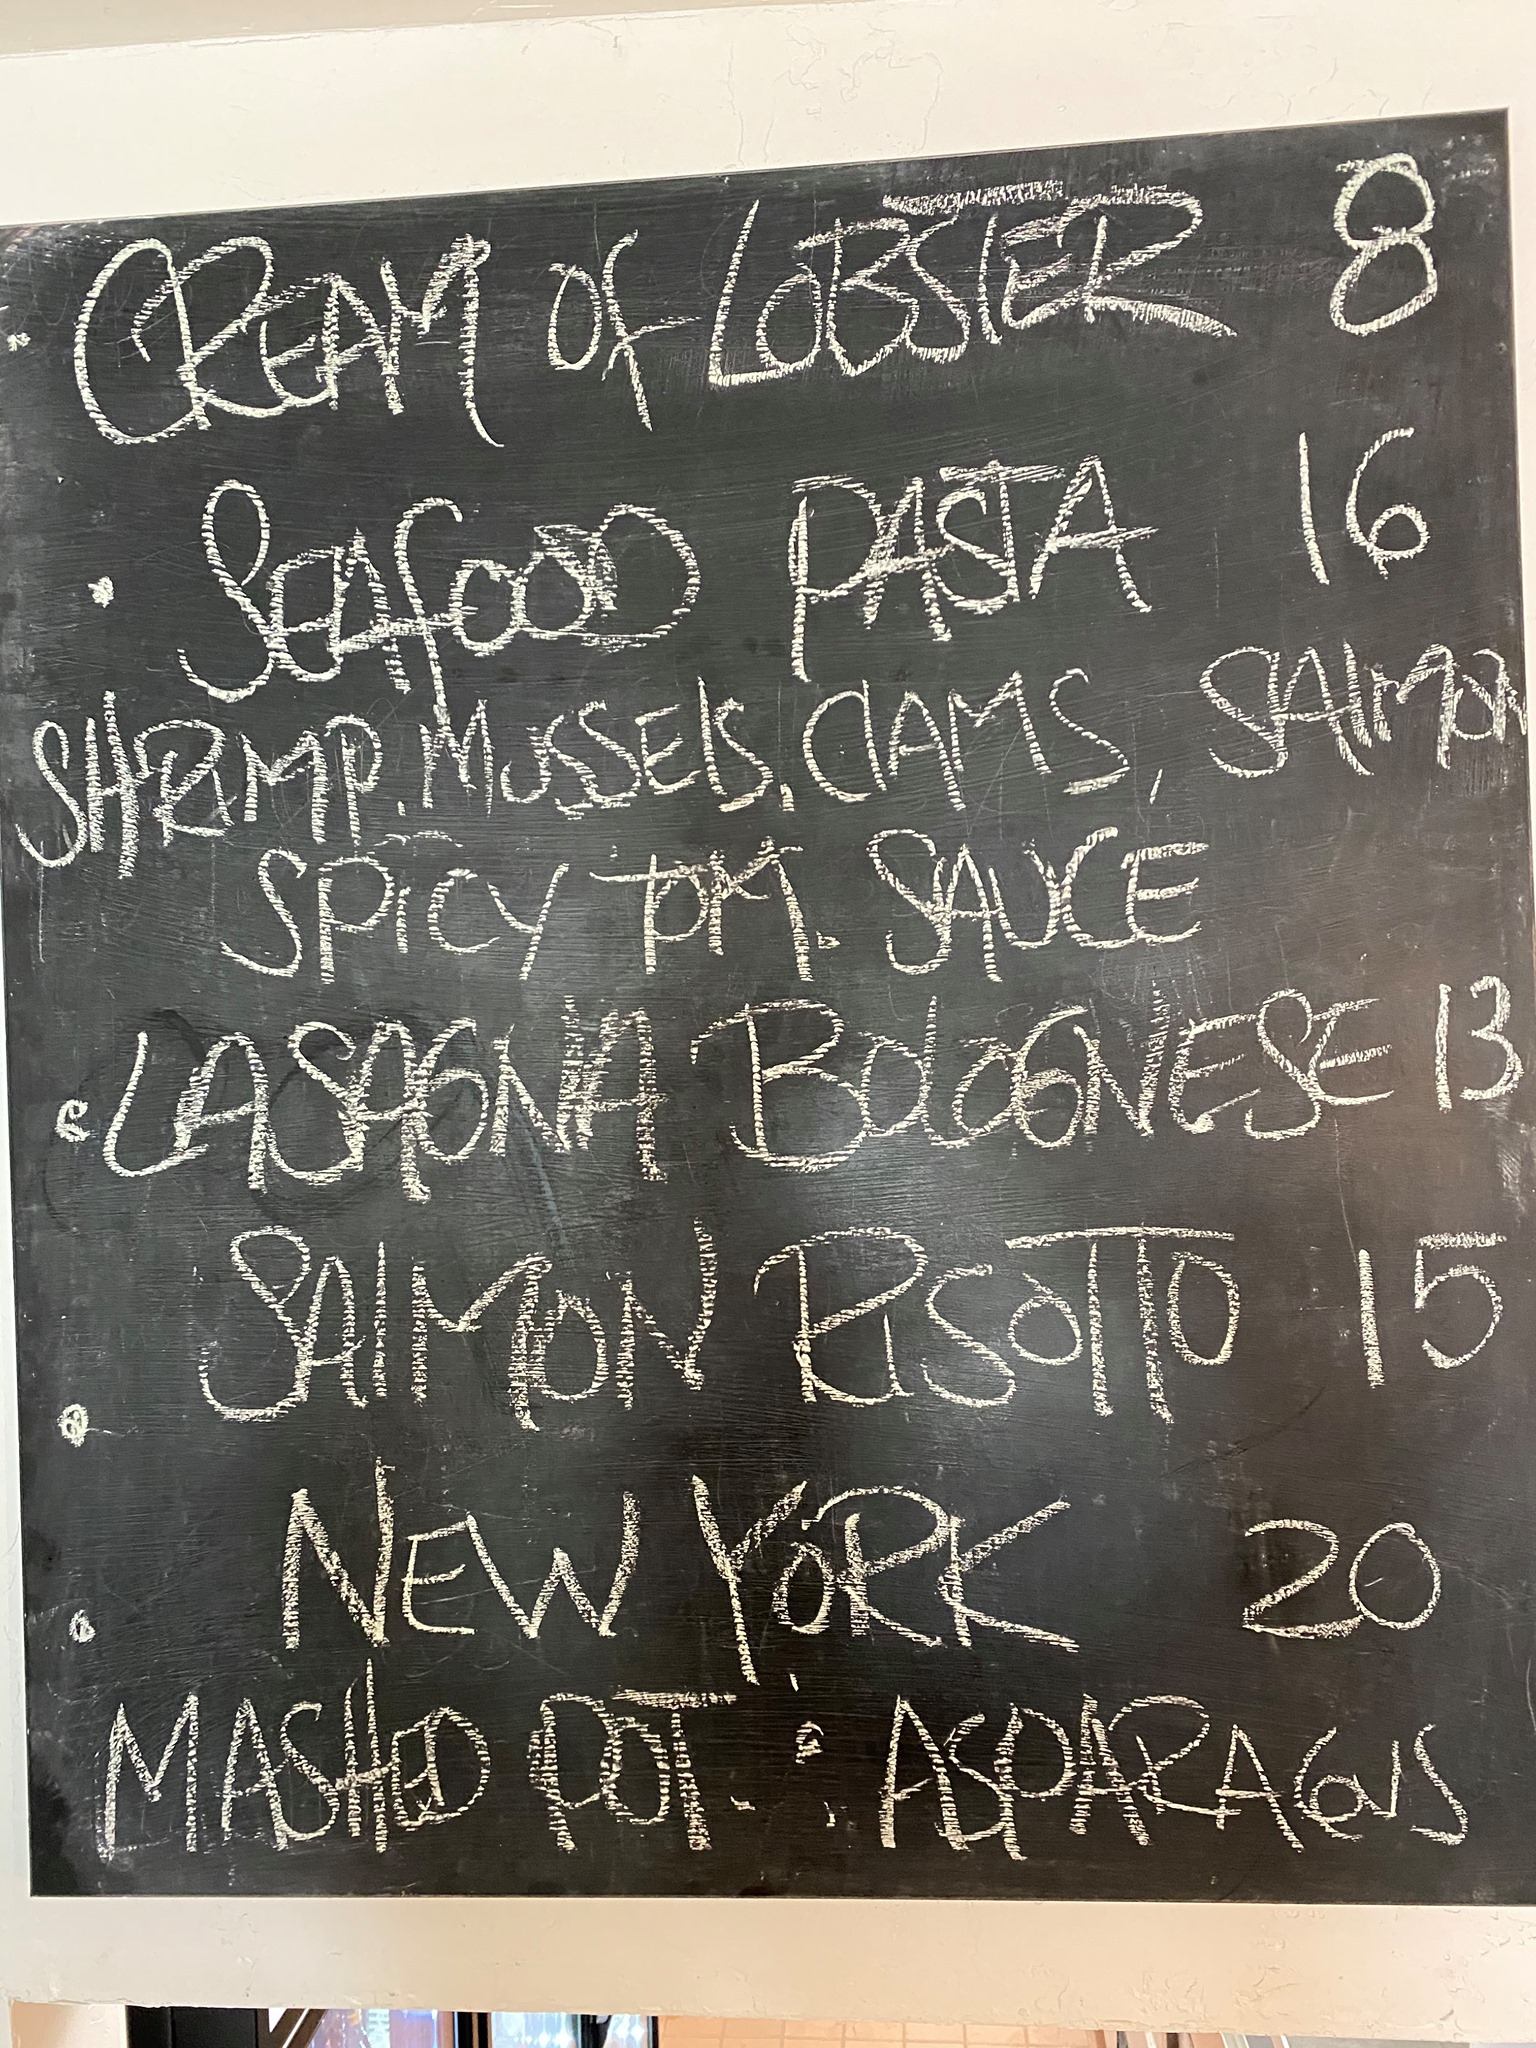 CREAM OF LOBSTER 8
SEAFOOD PASTA 16
SHRIMP, MUSSELS, CLAMS, SALMON
SPICY TOM. SAUCE
LASAGNA BOLOGNESE 13
SALMON RISOTTO 15
NEW YORK 20
MASHED POT. ASPARAGUS